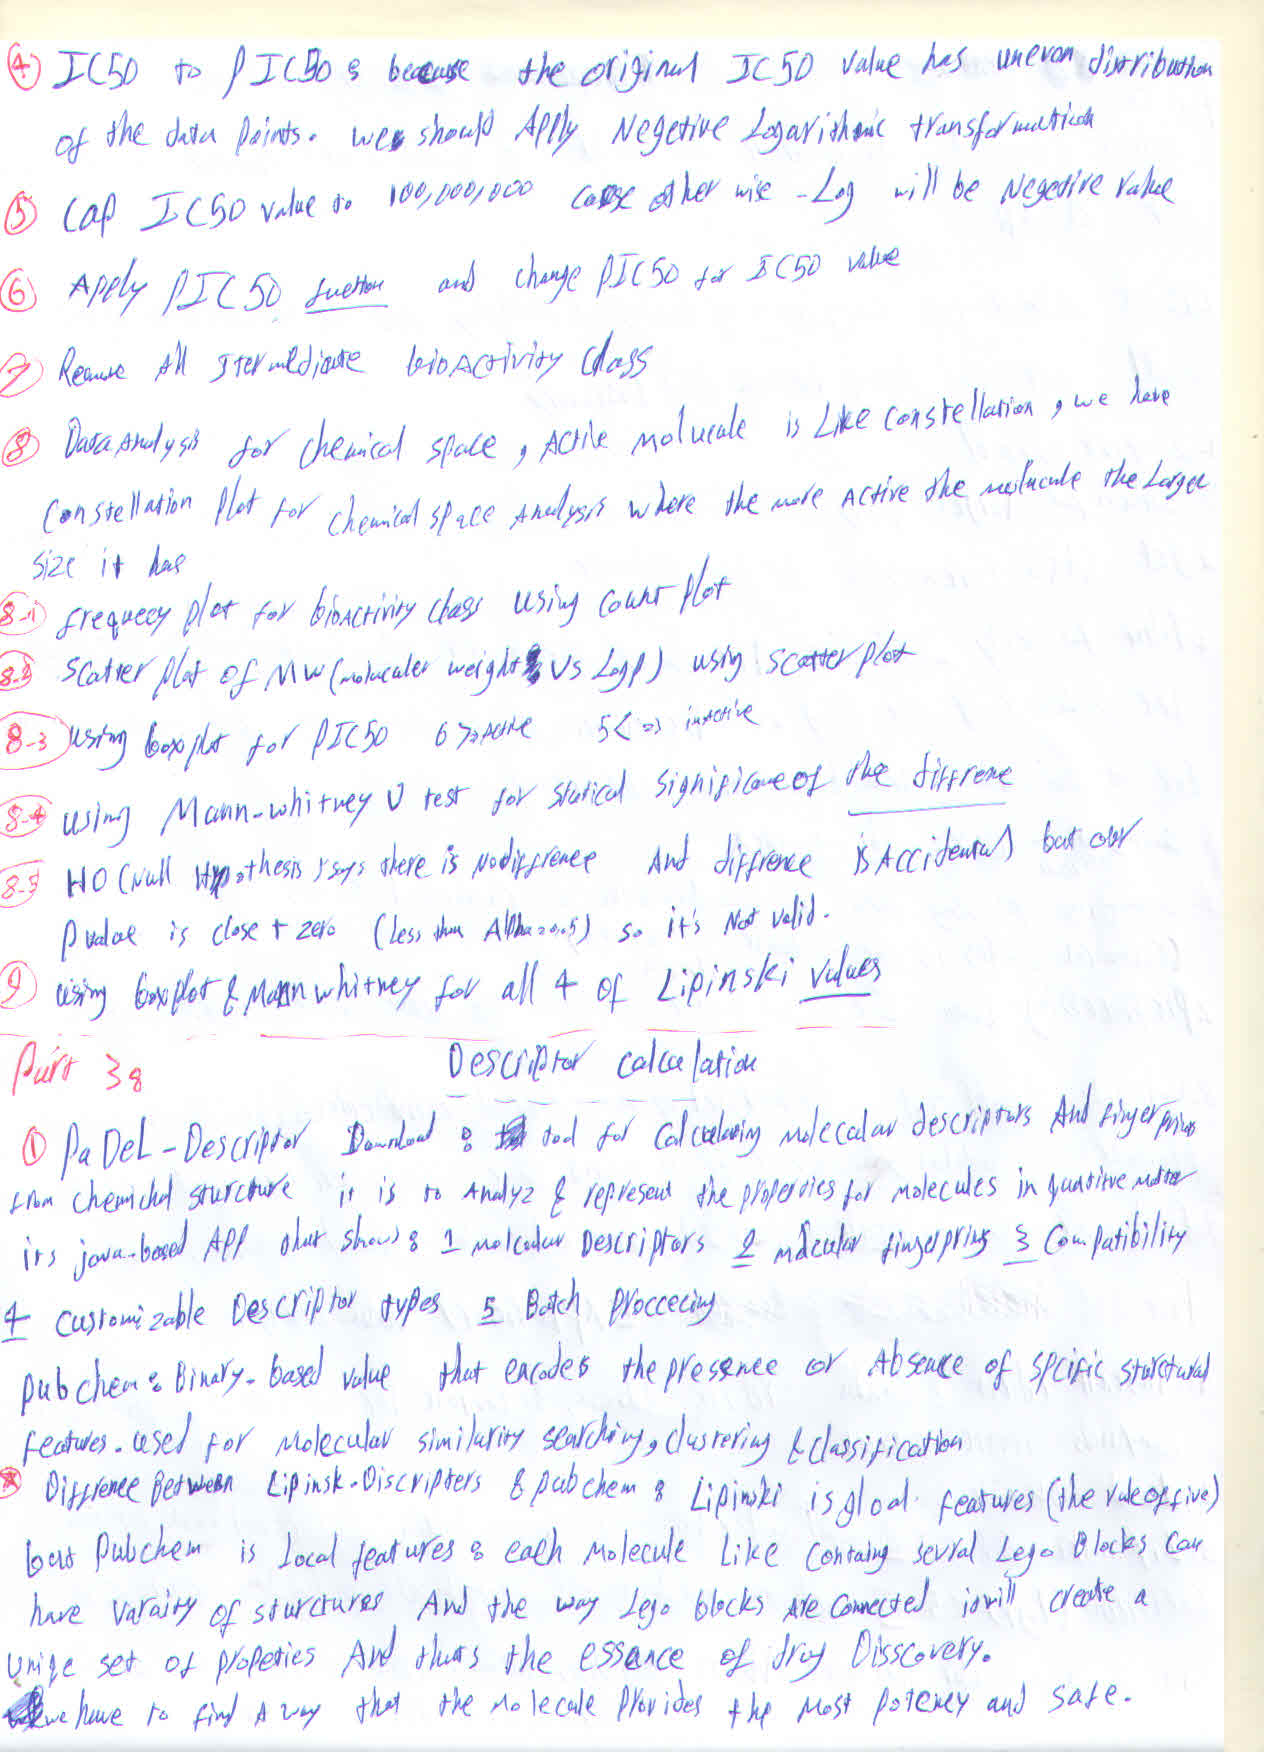 ④ IC50 to pIC50 : because the original IC50 value has uneven distribution
of the data points. we should Apply Negetive Logarithmic transformation
⑤ Cap IC50 value to 100,000,000 cause other wise -Log will be Negetive value
⑥ Apply pIC50 fuction and change pIC50 for IC50 value
⑦ Remove All Itermediate bioActivity Class
⑧ Data Analysis for chemical space, Active molucule is Like constellation, we have
Constellation plot for chemical space Analysis where the more Active the molucule the Larger
size it has
8-1 frequecy plot for bioActivity class using count plot
8-2 scatter plot of MW (moluculer weight Vs Logp) using scatter plot
8-3 using boxplot for pIC50 6 >= Active 5 < => inactive
8-4 using Mann-whitney U test for statical significance of the diffrene
8-5 H0 (Null Hypothesis) says there is No diffrence And diffrence is Accidental) but our
p value is close t zero (Less than Alpha = 0.05) so it's Not valid.
9 using boxplot & Mann whitney for all 4 of Lipinski values
Part 3: Descriptor calculation
① PaDeL-Descriptor Download : tool for calculating molecular descriptors And fingerprints
from chemichal sturcture it is to Analyz & represent the properties for molecules in quantitive matter
its java-based App that shows : 1 molcular Descriptors 2 mlcular fingerpring 3 Compatibility
4 customizable Descriptor types 5 Batch proccecing
pubchem : Binary-based value that encodes the presence or Absence of spcific sturctural
features. used for molecular similarity searching, clustering & classification
* Diffrence Between Lipinsk-Discripters & pubchem : Lipinski is gloal features (the rule of five)
but Pubchem is Local features : each molecule Like containg sevral Lego Blocks can
have varaity of sturctures And the way Lego blocks are connected it will create a
uniqe set of propeties And thats the essence of drug Disscovery.
we have to find A way that the molecule provides the most potency and safe.